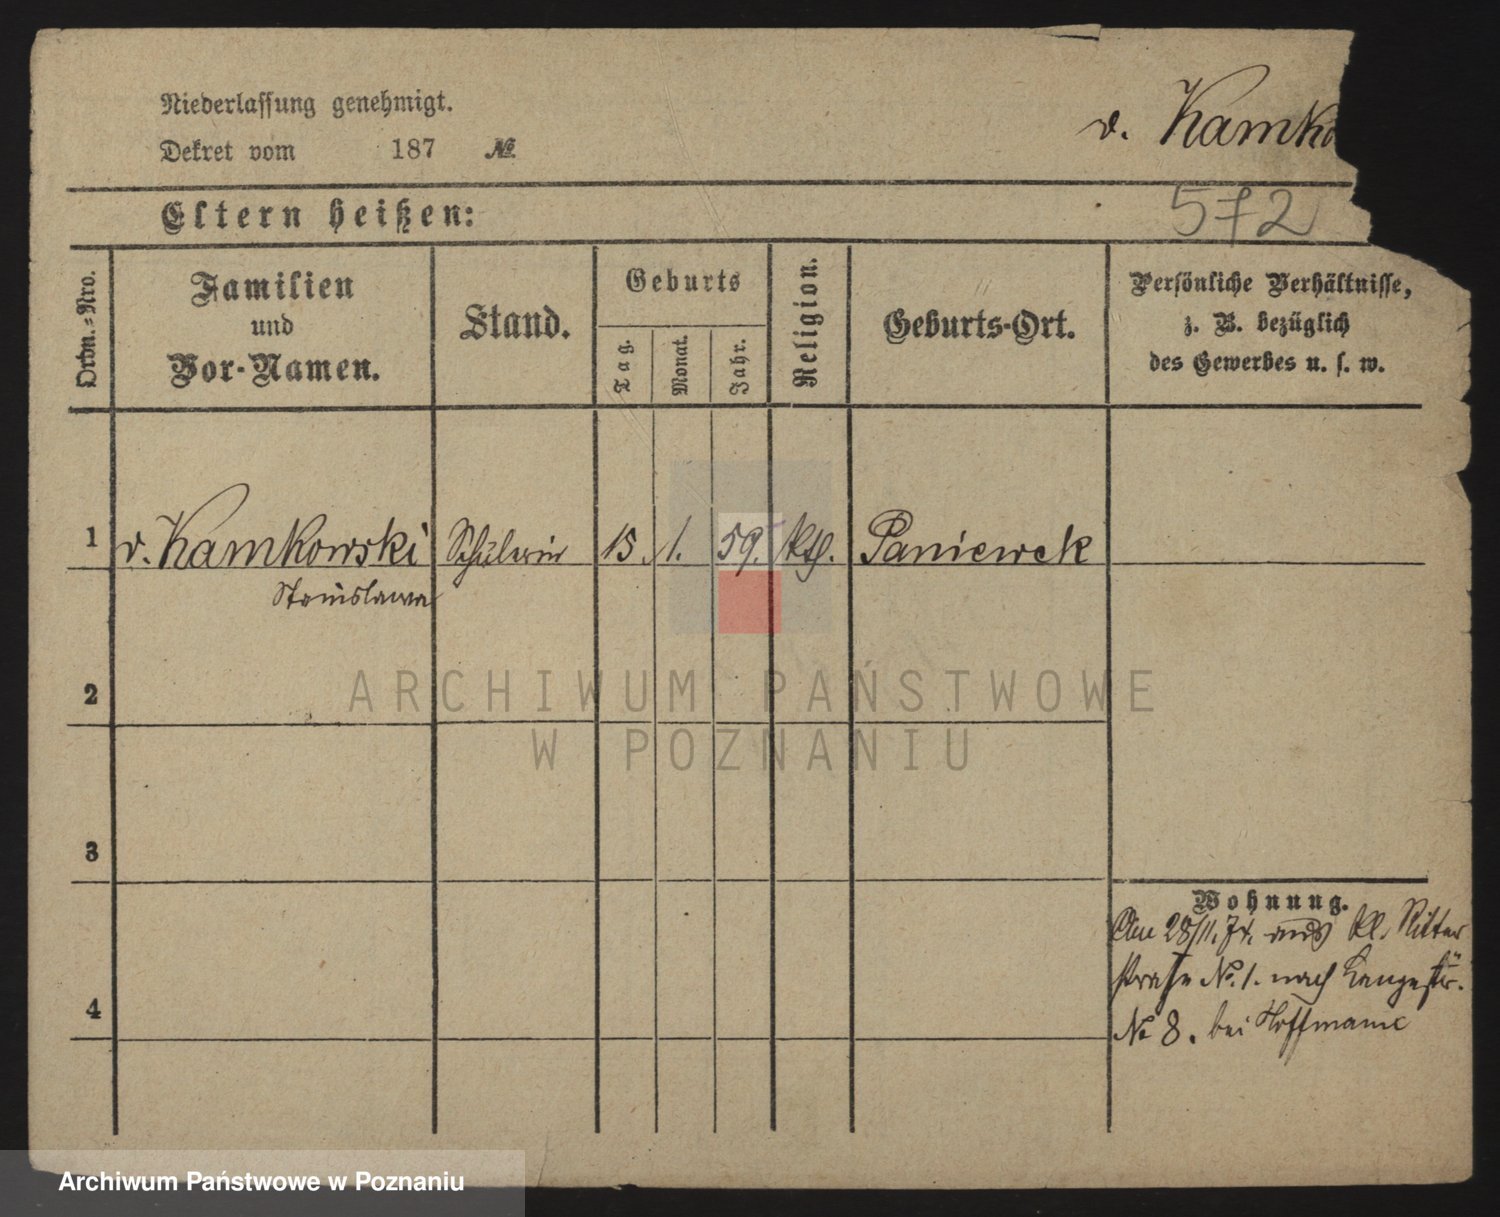 Niederlassung genehmigt.
v. Kamko
Dekret vom 187 №
Eltern heißen:
572
Ordn.-Nro.
Familien
und
Vor-Namen.
Stand.
Geburts
Tag.
Monat.
Jahr.
Religion.
Geburts-Ort.
Persönliche Verhältnisse,
z. B. bezüglich
des Gewerbes u. s. w.
1 v. Kamkowski Schülerin 15. 1. 59. kth. Paniewek
Stanislawa
2
ARCHIWUM PAŃSTWOWE
W POZNANIU
3
Wohnung.
Am 28/11. 74. aus kl. Ritter
straße No. 1. nach Langestr.
No 8. bei Hoffmann
4
Archiwum Państwowe w Poznaniu